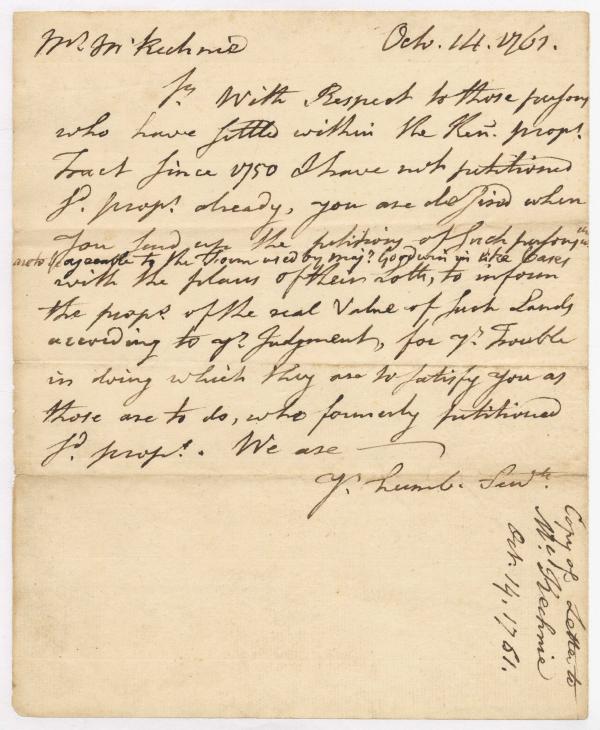 Mr. McKechnie Octo. 14. 1761.
Sr. With Respect to those persons
who have settled within the Ken. propr.
Tract since 1750 & have not petitioned
sd. proprs. already, you are desired when
you send up the petitions of such persons
agreeable to the Form used by Majr. Goodwin in like Cases
with the plans of their Lotts, to inform
the proprs. of the real Value of such Lands
according to yr. Judgment, for yr. Trouble
in doing which they are to satisfy you as
those are to do, who formerly petitioned
sd. proprs. We are
Yr. humb. Servts.
Copy of Letter to
Mc.Kechnie
Oct. 14, 1761.